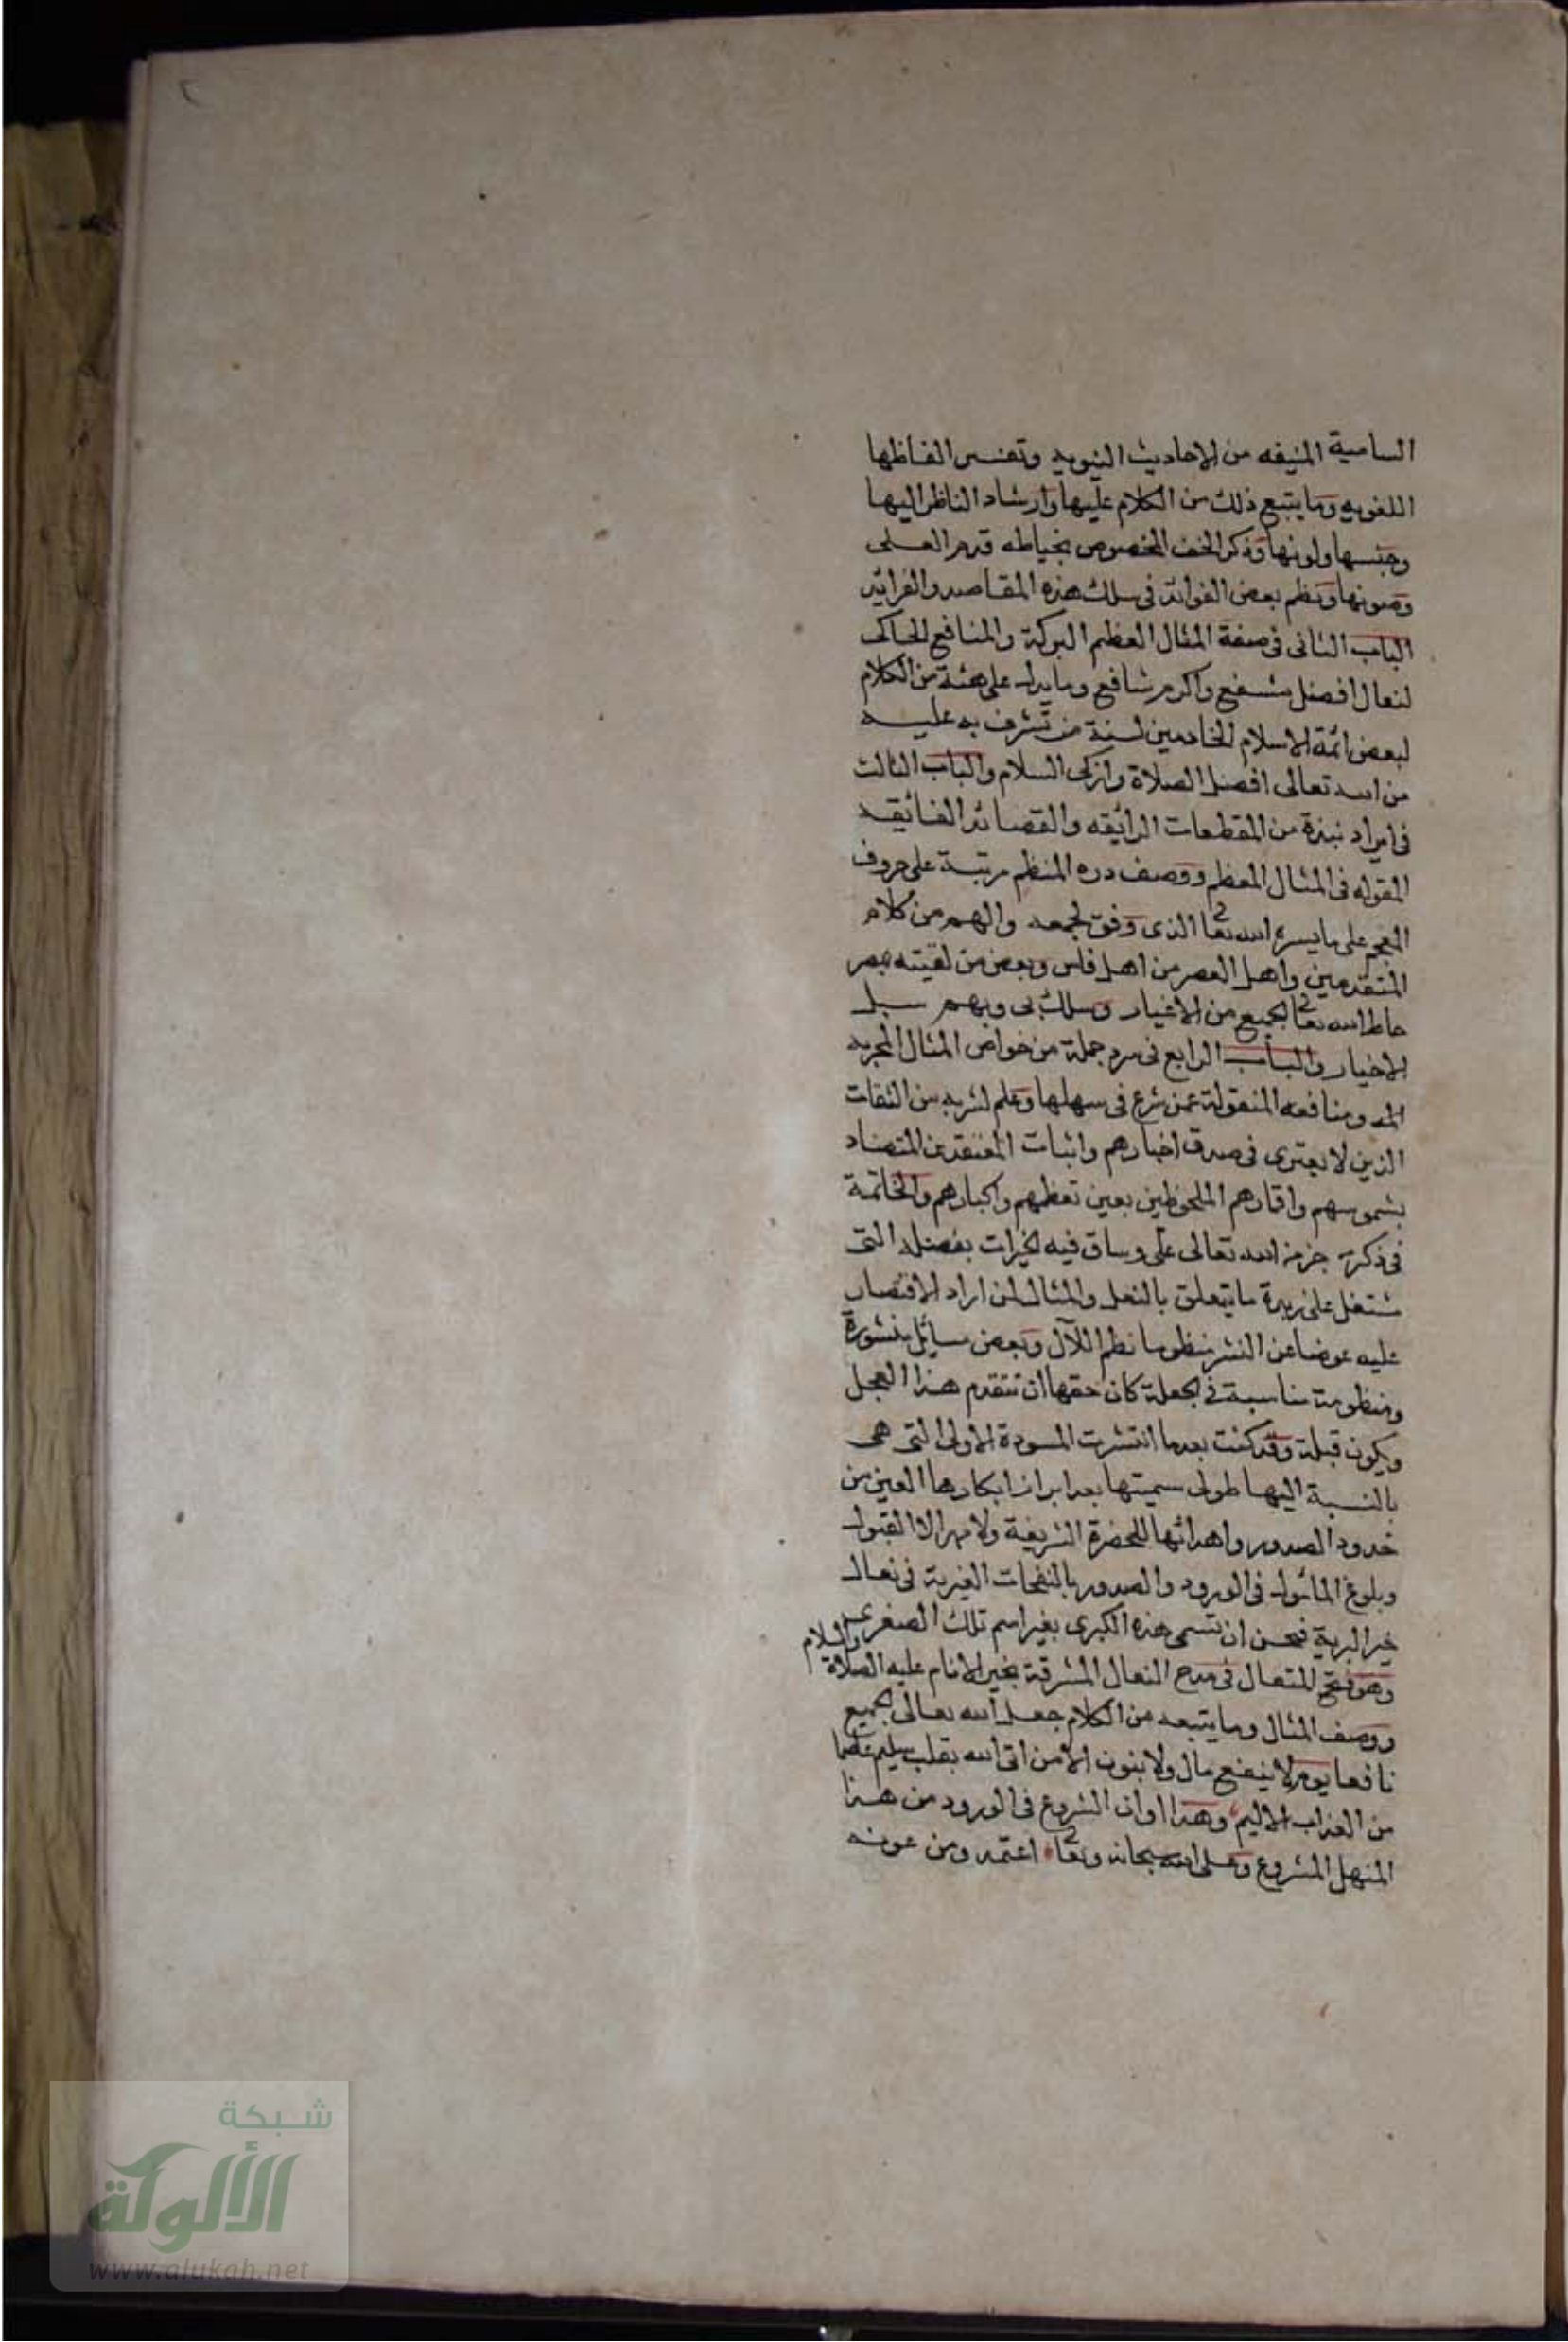 ٢
السامية المنيفه من الاحاديث النبويه وتفسير الفاظها
اللغويه وما يتبع ذلك من الكلام عليها وارشاد الناظر اليها
وجنسها ولونها وذكر الخف المخصوص بخياطه قدم العلى
وصونها ونظم بعض الفوائد فى سلك هذه المقاصد والفرائد
الباب الثانى فى صفة المثال العظيم البركة والمنافع الحاكى
لنعال افضل مشفع واكرم شافع وما يدل على هئة من الكلام
لبعض ائمة الاسلام الخادمين لسنة من تشرف به عليه
من الله تعالى افضل الصلاة وازكى السلام والباب الثالث
فى ايراد نبذة من المقطعات الرائقه والقصائد الفائقه
المقوله فى المثال المعظم ووصف دره المنظم مرتبة على حروف
المعجم على ما يسره الله تعا الذى وفق لجمعه والهم من كلام
المتقدمين واهل العصر من اهل فاس وبعض من لقيته بمصر
حاط الله تعا الجميع من الاغيار وسلك بى وبهم سبل
الاخيار والباب الرابع فى سرد جملة من خواص المثال المجربه
ومنافعه المنقولة عمن شرع فى سهلها وعلم لشربه من الثقات
الذين لا يمترى فى صدق اخبارهم واثبات المعتقدين
بشموسهم واقمارهم الملحوظين بعين تعظيمهم واكبارهم والخاتمة
فى ذكر جزمنه الله تعالى على وساق فيه الخيرات بفضله التى
تشتغل على زبدة ما يتعلق بالنعل والمثال لمن اراد الاقتصار
عليه عوضا عن النشر منظوما نظم اللآل وبعض مسائل منشورة
ومنظومة مناسبة فى الجملة كان حقها ان تتقدم هذا المحل
ويكون قبلة وقد كنت بعدما انتشرت المسودة الاولى التى هى
بالنسبة اليها طولى سميتها بعد ابراز ابكارها العين من
خدود الصدور واهدائها للحضرة الشريفة ولا مهر الا القبول
وبلوغ المأمول فى الورود والصدور بالنفحات العنبرية فى نعال
خير البرية فحسن ان تسمى هذه الكبرى بغير اسم تلك الصغرى
وهو فتح المتعال فى مدح النعال المشرفة بخير الانام عليه الصلاة والسلام
ووصف المثال وما يتبعه من الكلام جعل الله تعالى الجميع
نافعا يوم لا ينفع مال ولا بنون الا من اتى الله بقلب سليم
من العذاب الاليم وهذا اوان الشروع فى الورود من هذا
المنهل المشروع وعلى الله سبحانه وتعا اعتمد ومن عونه
شبكة
الألوكة
www.alukah.net